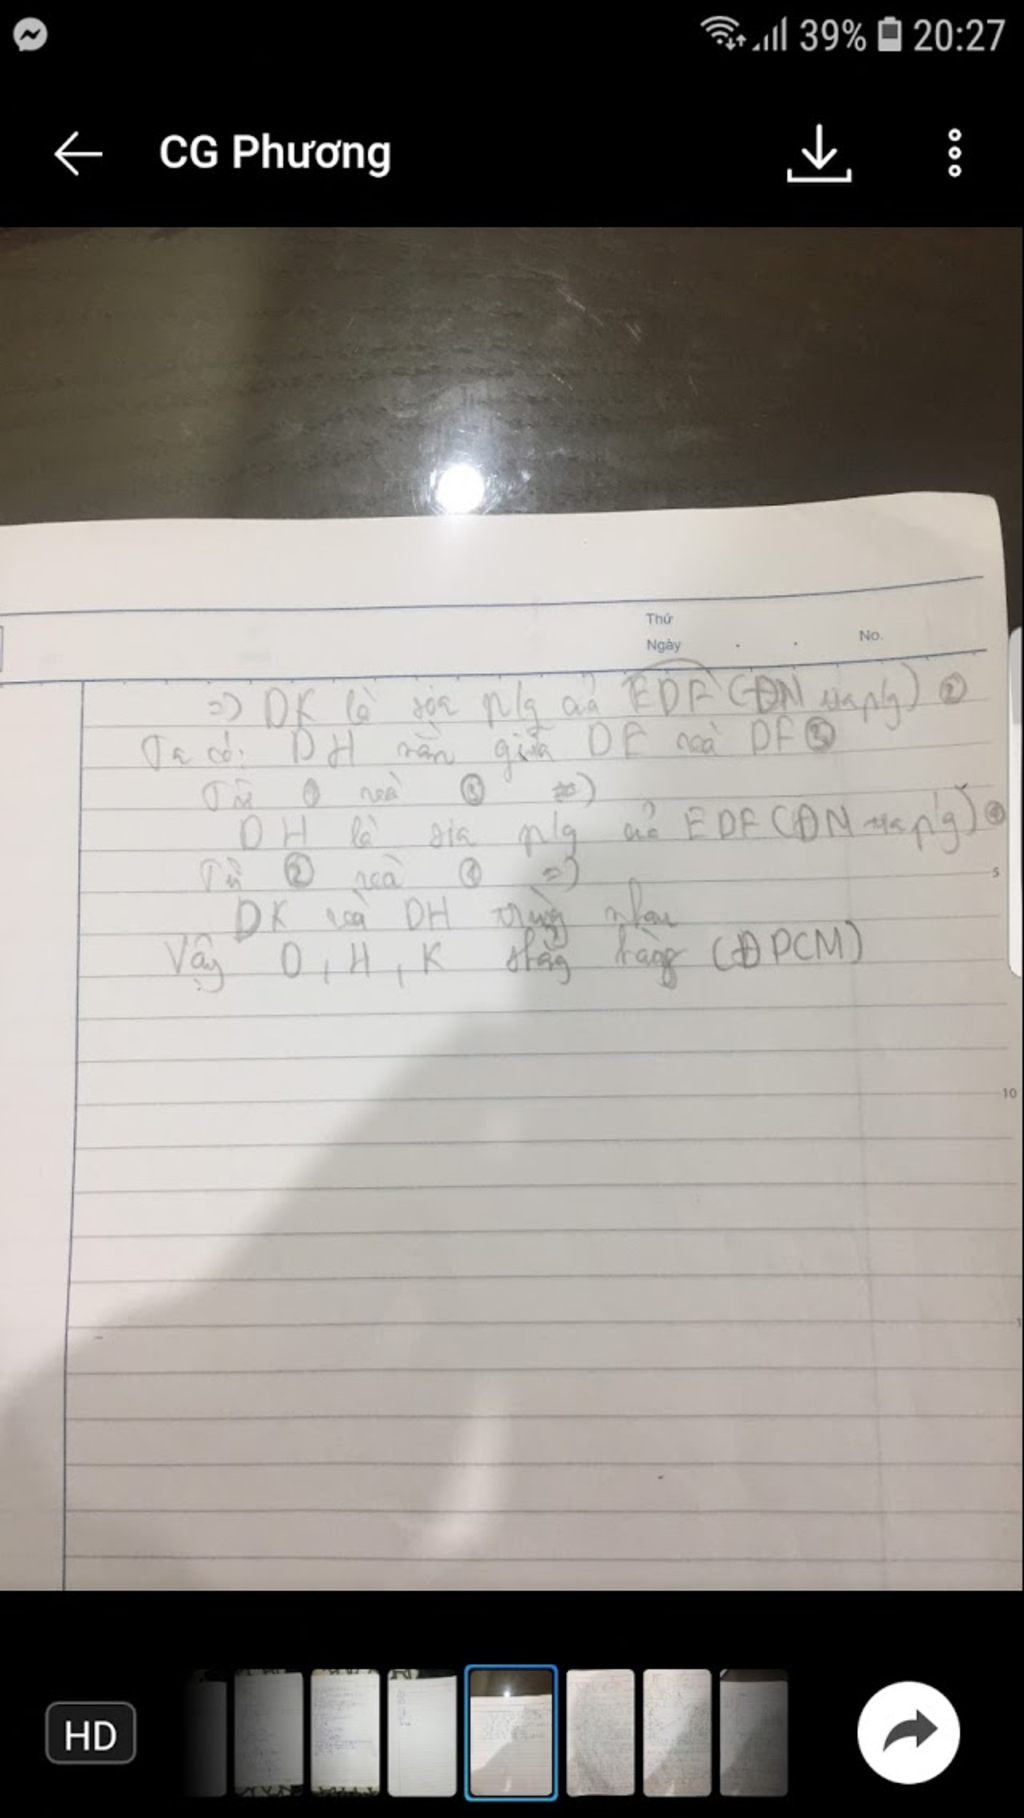 39% 20:27
CG Phương
Thứ
Ngày . . No.
=) DK là p/g của EDF (ĐN tia p/g) ②
Ta có: DH nằm giữa DE và DF ③
Từ ① và ③ =)
DH là p/g của EDF (ĐN tia p/g) ④
5
Từ ② và ④ =)
DK và DH trùng nhau
Vậy D, H, K thẳng hàng (ĐPCM)
10
HD